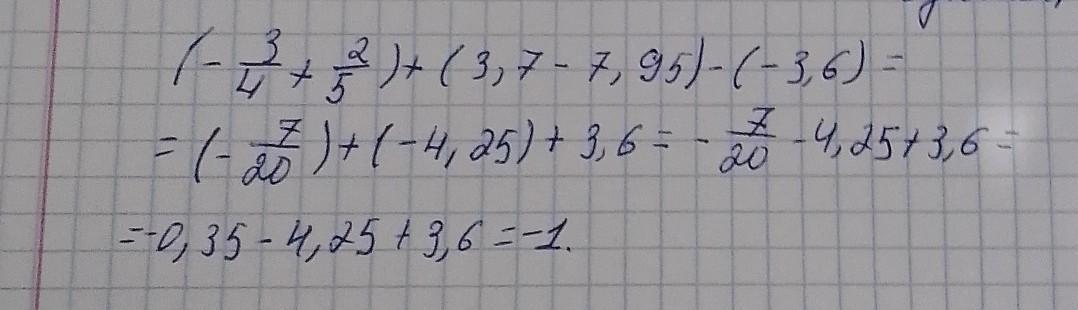 (-3/4 + 2/5) + (3,7 - 7,95) - (-3,6) =
= (-7/20) + (-4,25) + 3,6 = -7/20 - 4,25 + 3,6 =
= -0,35 - 4,25 + 3,6 = -1.